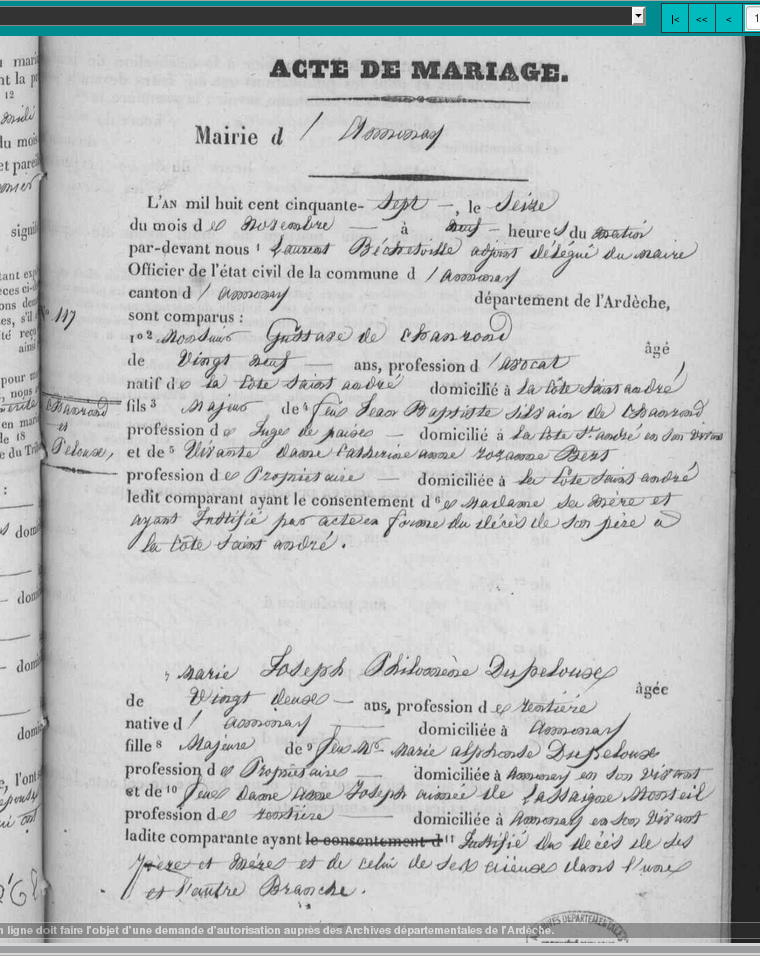 |<
<<
<
1
ACTE DE MARIAGE.
Mairie d' Annonay
L'AN mil huit cent cinquante- Sept —, le Seize
du mois de Novembre — à neuf — heures du matin
par-devant nous 1 Laurent Béchetoille adjoint délégué du Maire
Officier de l'état civil de la commune d'annonay
canton d'annonay département de l'Ardèche,
sont comparus :
1o 2 Monsieur Gustave de Chanrond
âgé
de Vingt neuf — ans, profession d'avocat
natif de la Côte Saint andré domicilié à la Côte Saint andré
fils 3 Majeur de 4 feu Jean Baptiste Silvain de Chanrond
profession de Juge de paix — domicilié à la Côte St andré en son vivant
et de 5 Vivante dame Catherine anne rozanne Bert
profession de Propriétaire — domiciliée à la Côte Saint andré
ledit comparant ayant le consentement d 6 e Madame sa mère et
ayant Justifié par acte en forme du décès de son père à
la Côte Saint andré.
No 117
Chanrond
et
Peloux,
Marie Joseph Philomène Dupeloux
âgée
de Vingt deux — ans, profession de rentière
native d'annonay — domiciliée à annonay
fille 8 Majeure de 9 feu Mr Marie alphonse Dupeloux
profession de Propriétaire — domicilié à annonay en son vivant
et de 10 feue dame anne Joseph aimée de Lassaigne Monteil
profession de rentière domiciliée à annonay en son vivant
ladite comparante ayant le consentement d 11 Justifié du décès de ses
père et mère et de celui de ses aïeux dans l'une
et l'autre Branche.
ARCHIVES DÉPARTEMENTALES
n ligne doit faire l'objet d'une demande d'autorisation auprès des Archives départementales de l'Ardèche.